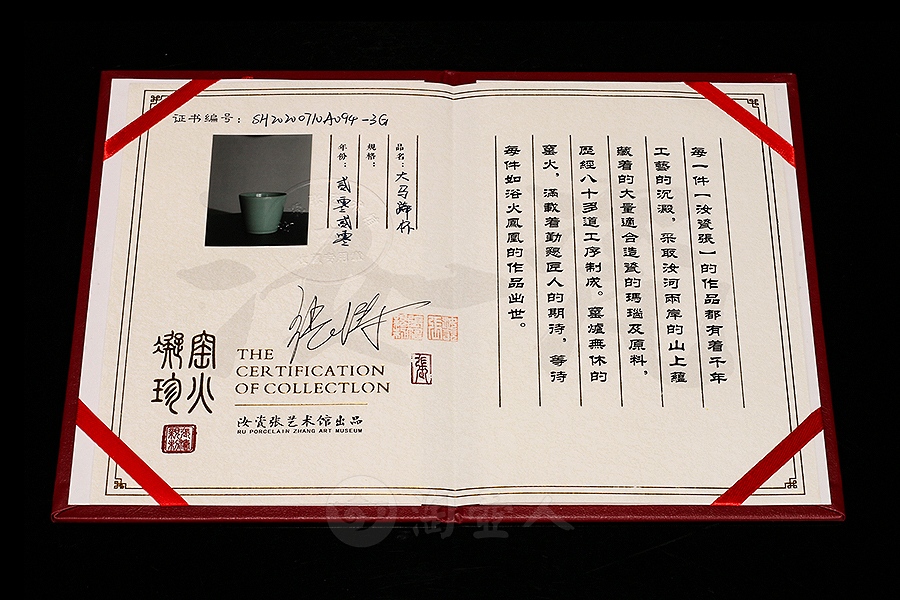 证书编号：SH20200710A094-3G
品名：大马蹄杯
规格：
年份：贰零贰零
窑火
凝珍
THE
CERTIFICATION
OF COLLECTLON
汝瓷张艺术馆出品
RU PORCELAIN ZHANG ART MUSEUM
每一件一汝瓷張一的作品都有着千年
工藝的沉澱，采取汝河兩岸的山上蘊
藏着的大量適合造瓷的瑪瑙及原料，
歷經八十多道工序制成。窰爐無休的
窰火，滿載着勤懇匠人的期待，等待
每件如浴火鳳凰的作品出世。